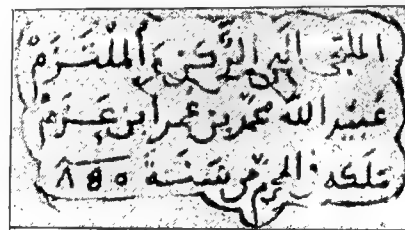 الملتجى الى الركن والملتزم
عبيد الله محمد بن عمر ابن عزم
ملكه في المحرم من سنة ٨٨٥